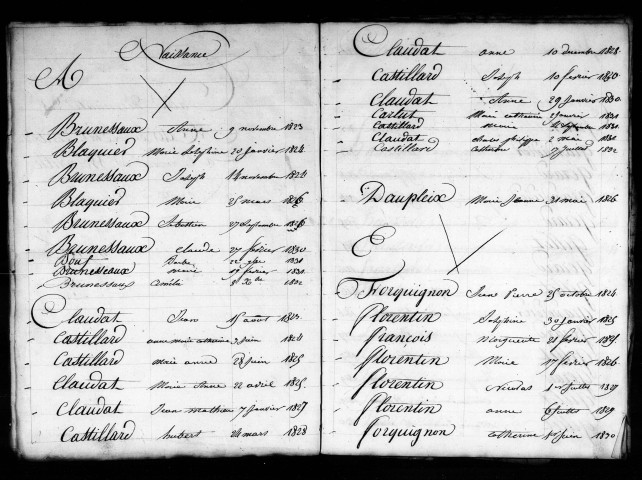 Naissance
A
Brunessaux Anne 9 novembre 1823
Blaquier Marie Josephine 20 Janvier 1824
Brunessaux Joseph 14 novembre 1824
Blaquier Marie 25 mars 1826
Brunessaux Sebastien 27 Septembre 1826
Brunessaux Claude 27 février 1830
Bouf Barbe 1831
Brunesseaux marie février 1831
Brunessaux Amélie 8 1832
Claudat Jean 15 août 1823
Castillard anne marie catherine 3 Juin 1824
Castillard Marie anne 28 Juin 1825
Claudat Marie Anne 22 avril 1825
Claudat Jean mathieu 7 Janvier 1827
Castillard hubert 24 mars 1828
Claudat anne 10 décembre 1828
Castillard Joseph 10 février 1830
Claudat Anne 29 Janvier 1830
Carlut Marie catherine Janvier 1831
Castillard marie
Claudat charles philippe 2 mai 1831
Castillard Catherine Juillet 1832
Daupleix Marie Jeanne 31 mai 1826
E
Forquignon Jean Pierre 25 octobre 1824
Florentin Josephine 30 Janvier 1825
François Marguerite 21 février 1825
Florentin Marie 17 février 1826
Florentin Nicolas 1er Juillet 1827
Florentin anne 6 Juillet 1829
Forquignon Catherine 1er Juin 1830